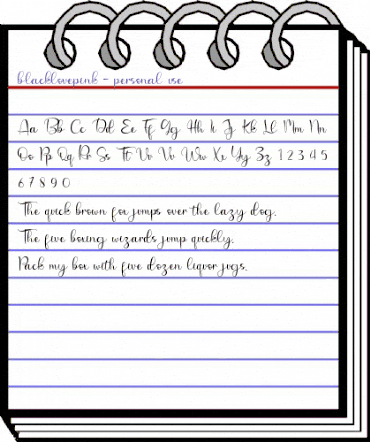 blacklovepink - personal use
Aa Bb Cc Dd Ee Ff Gg Hh Ii Jj Kk Ll Mm Nn
Oo Pp Qq Rr Ss Tt Uu Vv Ww Xx Yy Zz 1 2 3 4 5
6 7 8 9 0
The quick brown fox jumps over the lazy dog.
The five boxing wizards jump quickly.
Pack my box with five dozen liquor jugs.